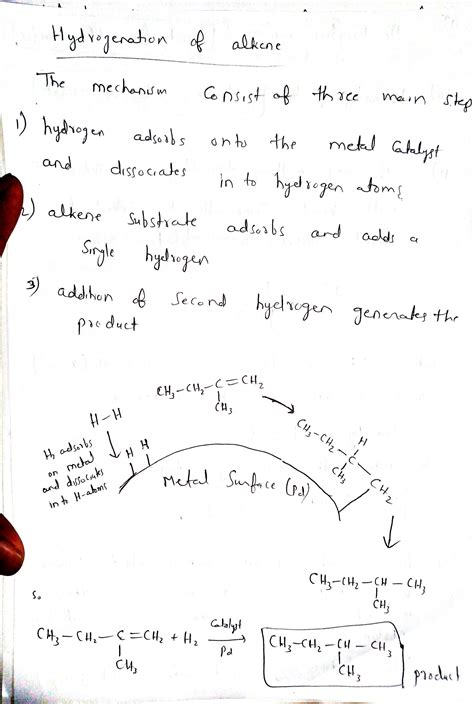 Hydrogenation of alkene
The mechanism consist of three main step
1) hydrogen adsorbs onto the metal Catalyst
and dissociates in to hydrogen atoms
2) alkene Substrate adsorbs and adds a
Single hydrogen
3) addition of Second hydrogen generates the
product
CH3-CH2-C=CH2
CH3
H-H
H2 adsorbs
on metal
and dissociates
in to H-atoms
H H
Metal Surface (Pd)
H
CH3-CH2-C
CH3
CH2
CH3-CH2-CH-CH3
CH3
So
CH3-CH2-C=CH2 + H2
CH3
Catalyst
Pd
CH3-CH2-CH-CH3
CH3
product